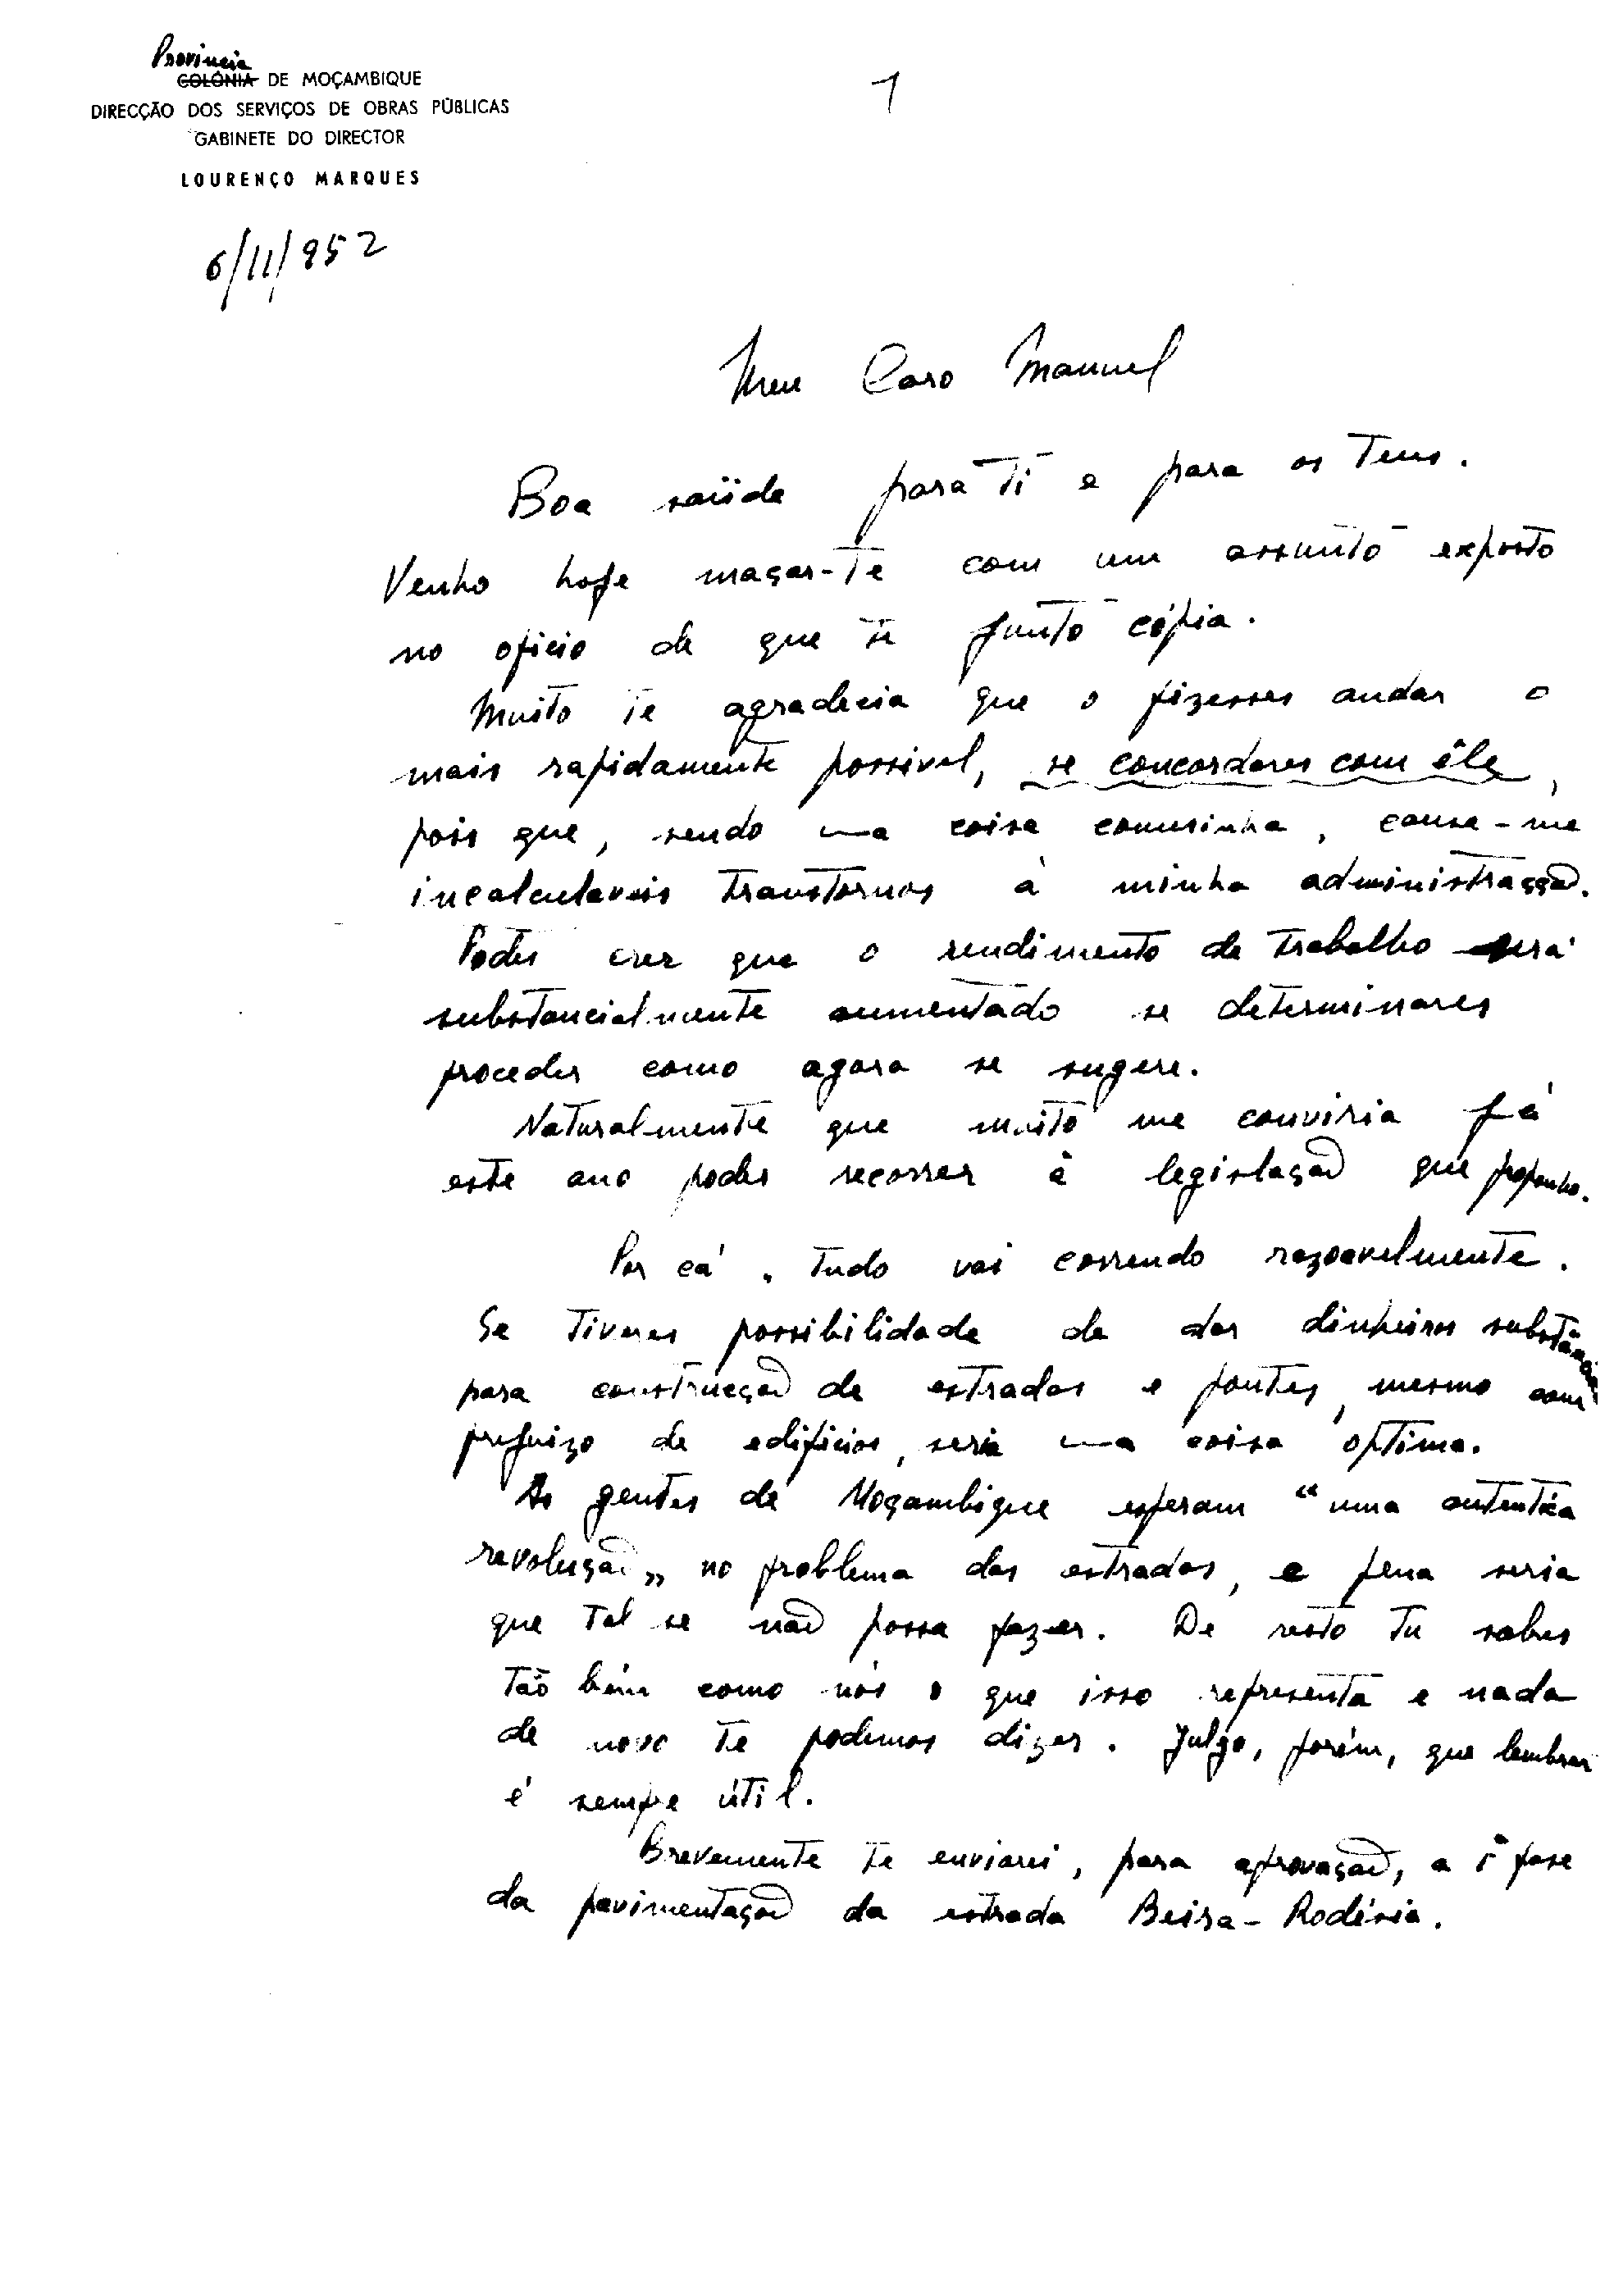 Provincia
COLÓNIA DE MOÇAMBIQUE
1
DIRECÇÃO DOS SERVIÇOS DE OBRAS PÚBLICAS
GABINETE DO DIRECTOR
LOURENÇO MARQUES
6/11/952
Meu Caro Manuel
Boa saúde para ti e para os teus.
Venho hoje maçar-te com um assunto exposto
no oficio de que te junto cópia.
Muito te agradecia que o fizesses andar o
mais rapidamente possivel, se concordares com êle,
pois que, sendo uma coisa comesinha, causa-me
incalculaveis transtornos à minha administracção.
Podes crer que o rendimento de trabalho será
substancialmente aumentado se determinares
proceder como agora se sugere.
Naturalmente que muito me conviria já
este ano poder recorrer à legislação que proponho.
Por cá, tudo vai correndo razoavelmente.
Se tiveres possibilidade de dar dinheiros substânciais
para construcção de estradas e pontes, mesmo com
prejuizo de edificios, seria uma coisa óptima.
As gentes de Moçambique esperam "uma autentica
revolução" no problema das estradas, e pena seria
que tal se não possa fazer. De resto tu sabes
tão bem como nós o que isso representa e nada
de novo te podemos dizer. Julgo, porém, que lembrar
é sempre útil.
Brevemente te enviarei, para aprovação, a 1ª fase
da pavimentação da estrada Beira-Rodésia.